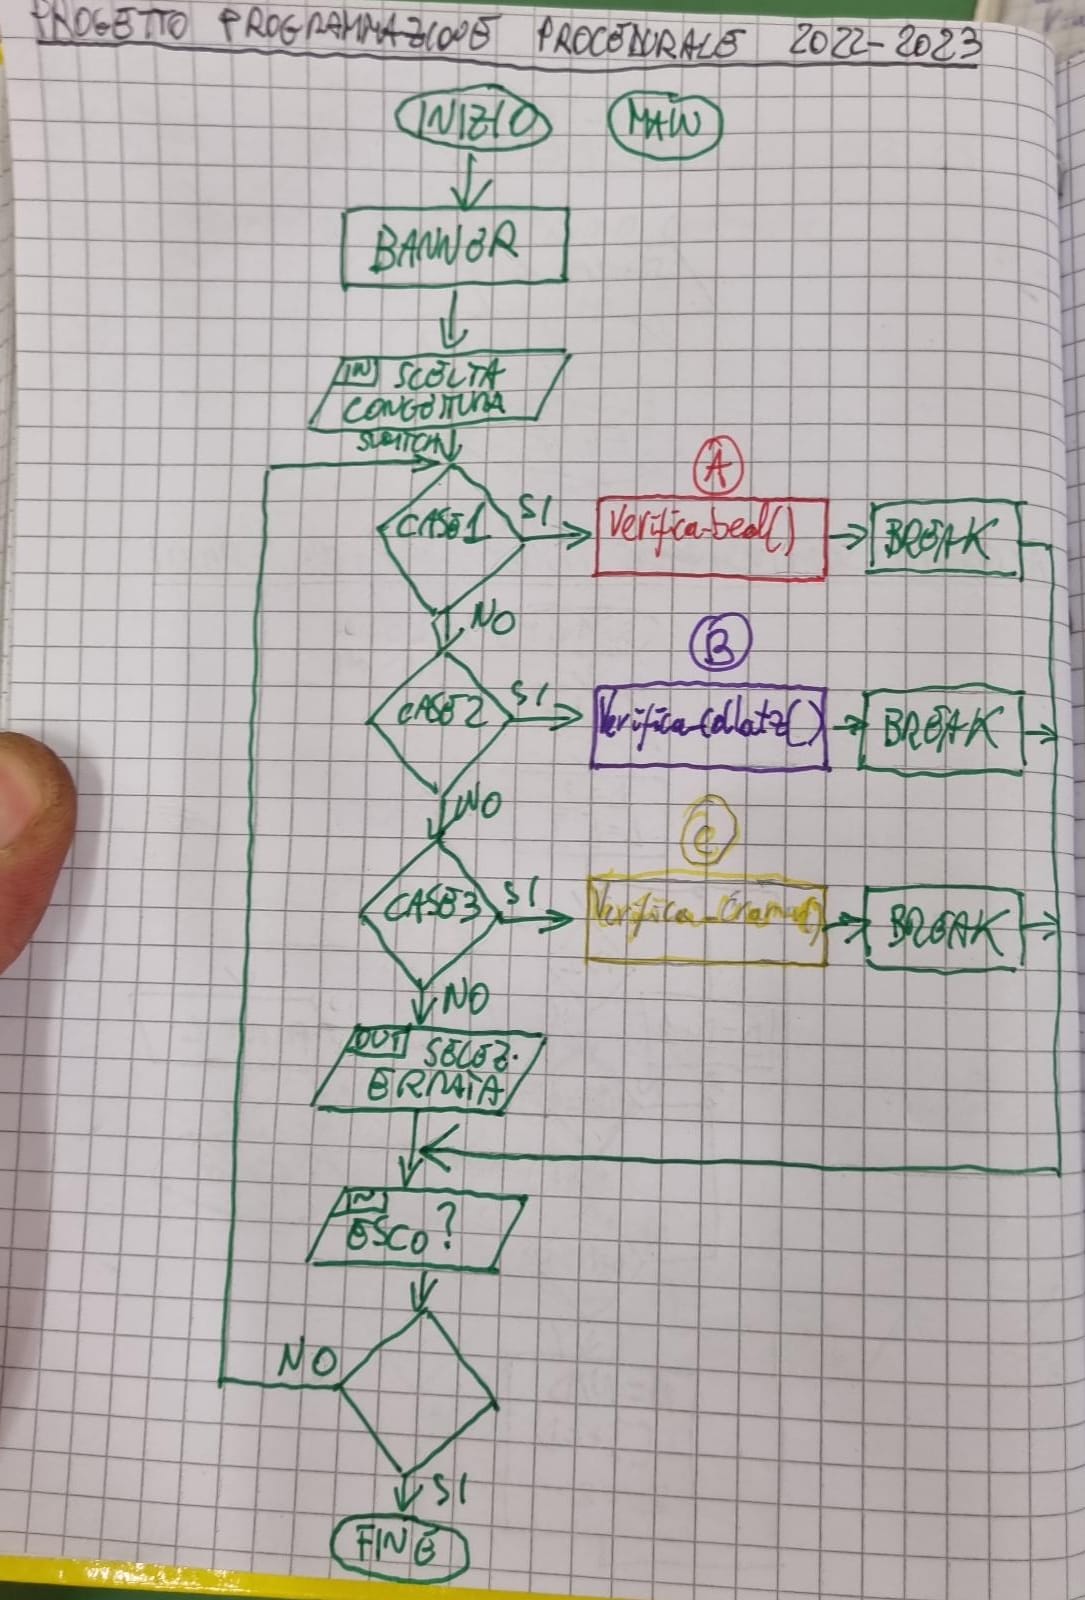 PROGETTO PROGRAMMAZIONE PROCEDURALE 2022-2023
INIZIO
MAIN
BANNER
IN SCELTA
CONGETTURA
SWITCH
A
CASE1
SI
Verifica-beal()
BREAK
NO
B
CASE2
SI
Verifica-Collatz()
BREAK
NO
C
CASE3
SI
Verifica_Cramer()
BREAK
NO
OUT SELEZ.
ERRATA
IN
ESCO?
NO
SI
FINE